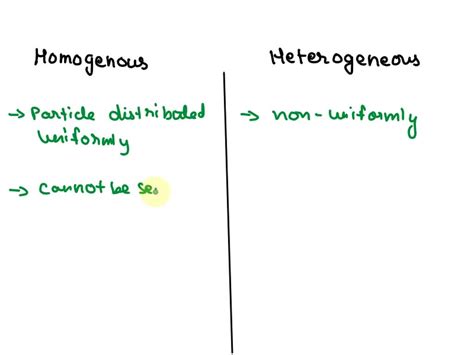 Homogenous
Heterogeneous
→ Particle distributed
uniformly
→ non-uniformly
→ cannot be se